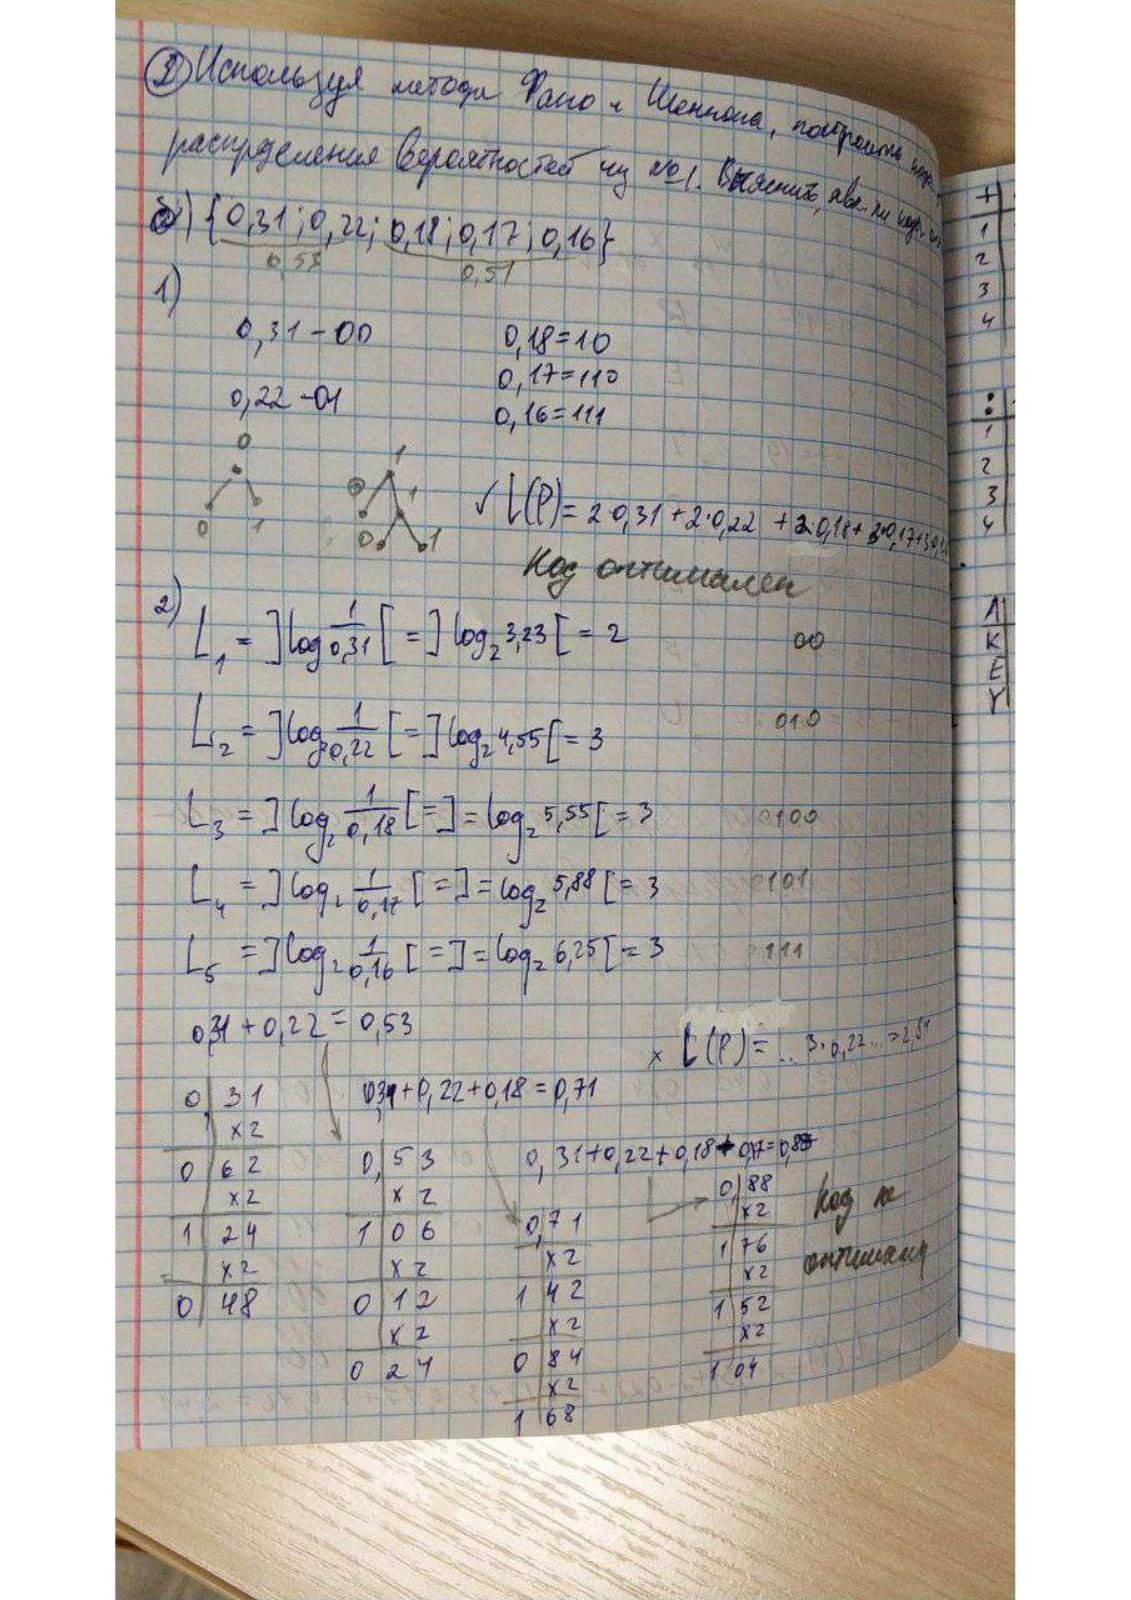 ② Используя методы Фано и Шеннона, построить коды
распределения вероятностей из №1. Выяснить, явл. ли коды
б) {0,31; 0,22; 0,18; 0,17; 0,16}
0,53 0,51
1)
0,31 - 00 0,18 = 10
0,22 - 01 0,17 = 110
0,16 = 111
0 1
0 1 0 1
0 1
✓ L(P) = 2·0,31 + 2·0,22 + 2·0,18 + 3·0,17 + 3·0,1
Код оптимален
2) L₁ = ]log 1/0,31[ = ]log₂ 3,23[ = 2 00
L₂ = ]log₂ 1/0,22[ = ]log₂ 4,55[ = 3 010
L₃ = ]log₂ 1/0,18[ = ] = log₂ 5,55[ = 3 100
L₄ = ]log₂ 1/0,17[ = ] = log₂ 5,88[ = 3 101
L₅ = ]log₂ 1/0,16[ = ] = log₂ 6,25[ = 3 111
0,31 + 0,22 = 0,53
x L(P) = ... 3·0,22 ... =
0,31+0,22+0,18 = 0,71
0,31+0,22+0,18+0,17=0,88
0, 31
x2
0 62
x2
1 24
x2
0 48
0, 53
x2
1 06
x2
0 12
x2
0 24
0, 71
x2
1 42
x2
0 84
x2
1 68
0, 88
x2
1 76
x2
1 52
x2
1 04
Код не
+
1
2
3
4
:
1
2
3
4
Л
К
Е
У